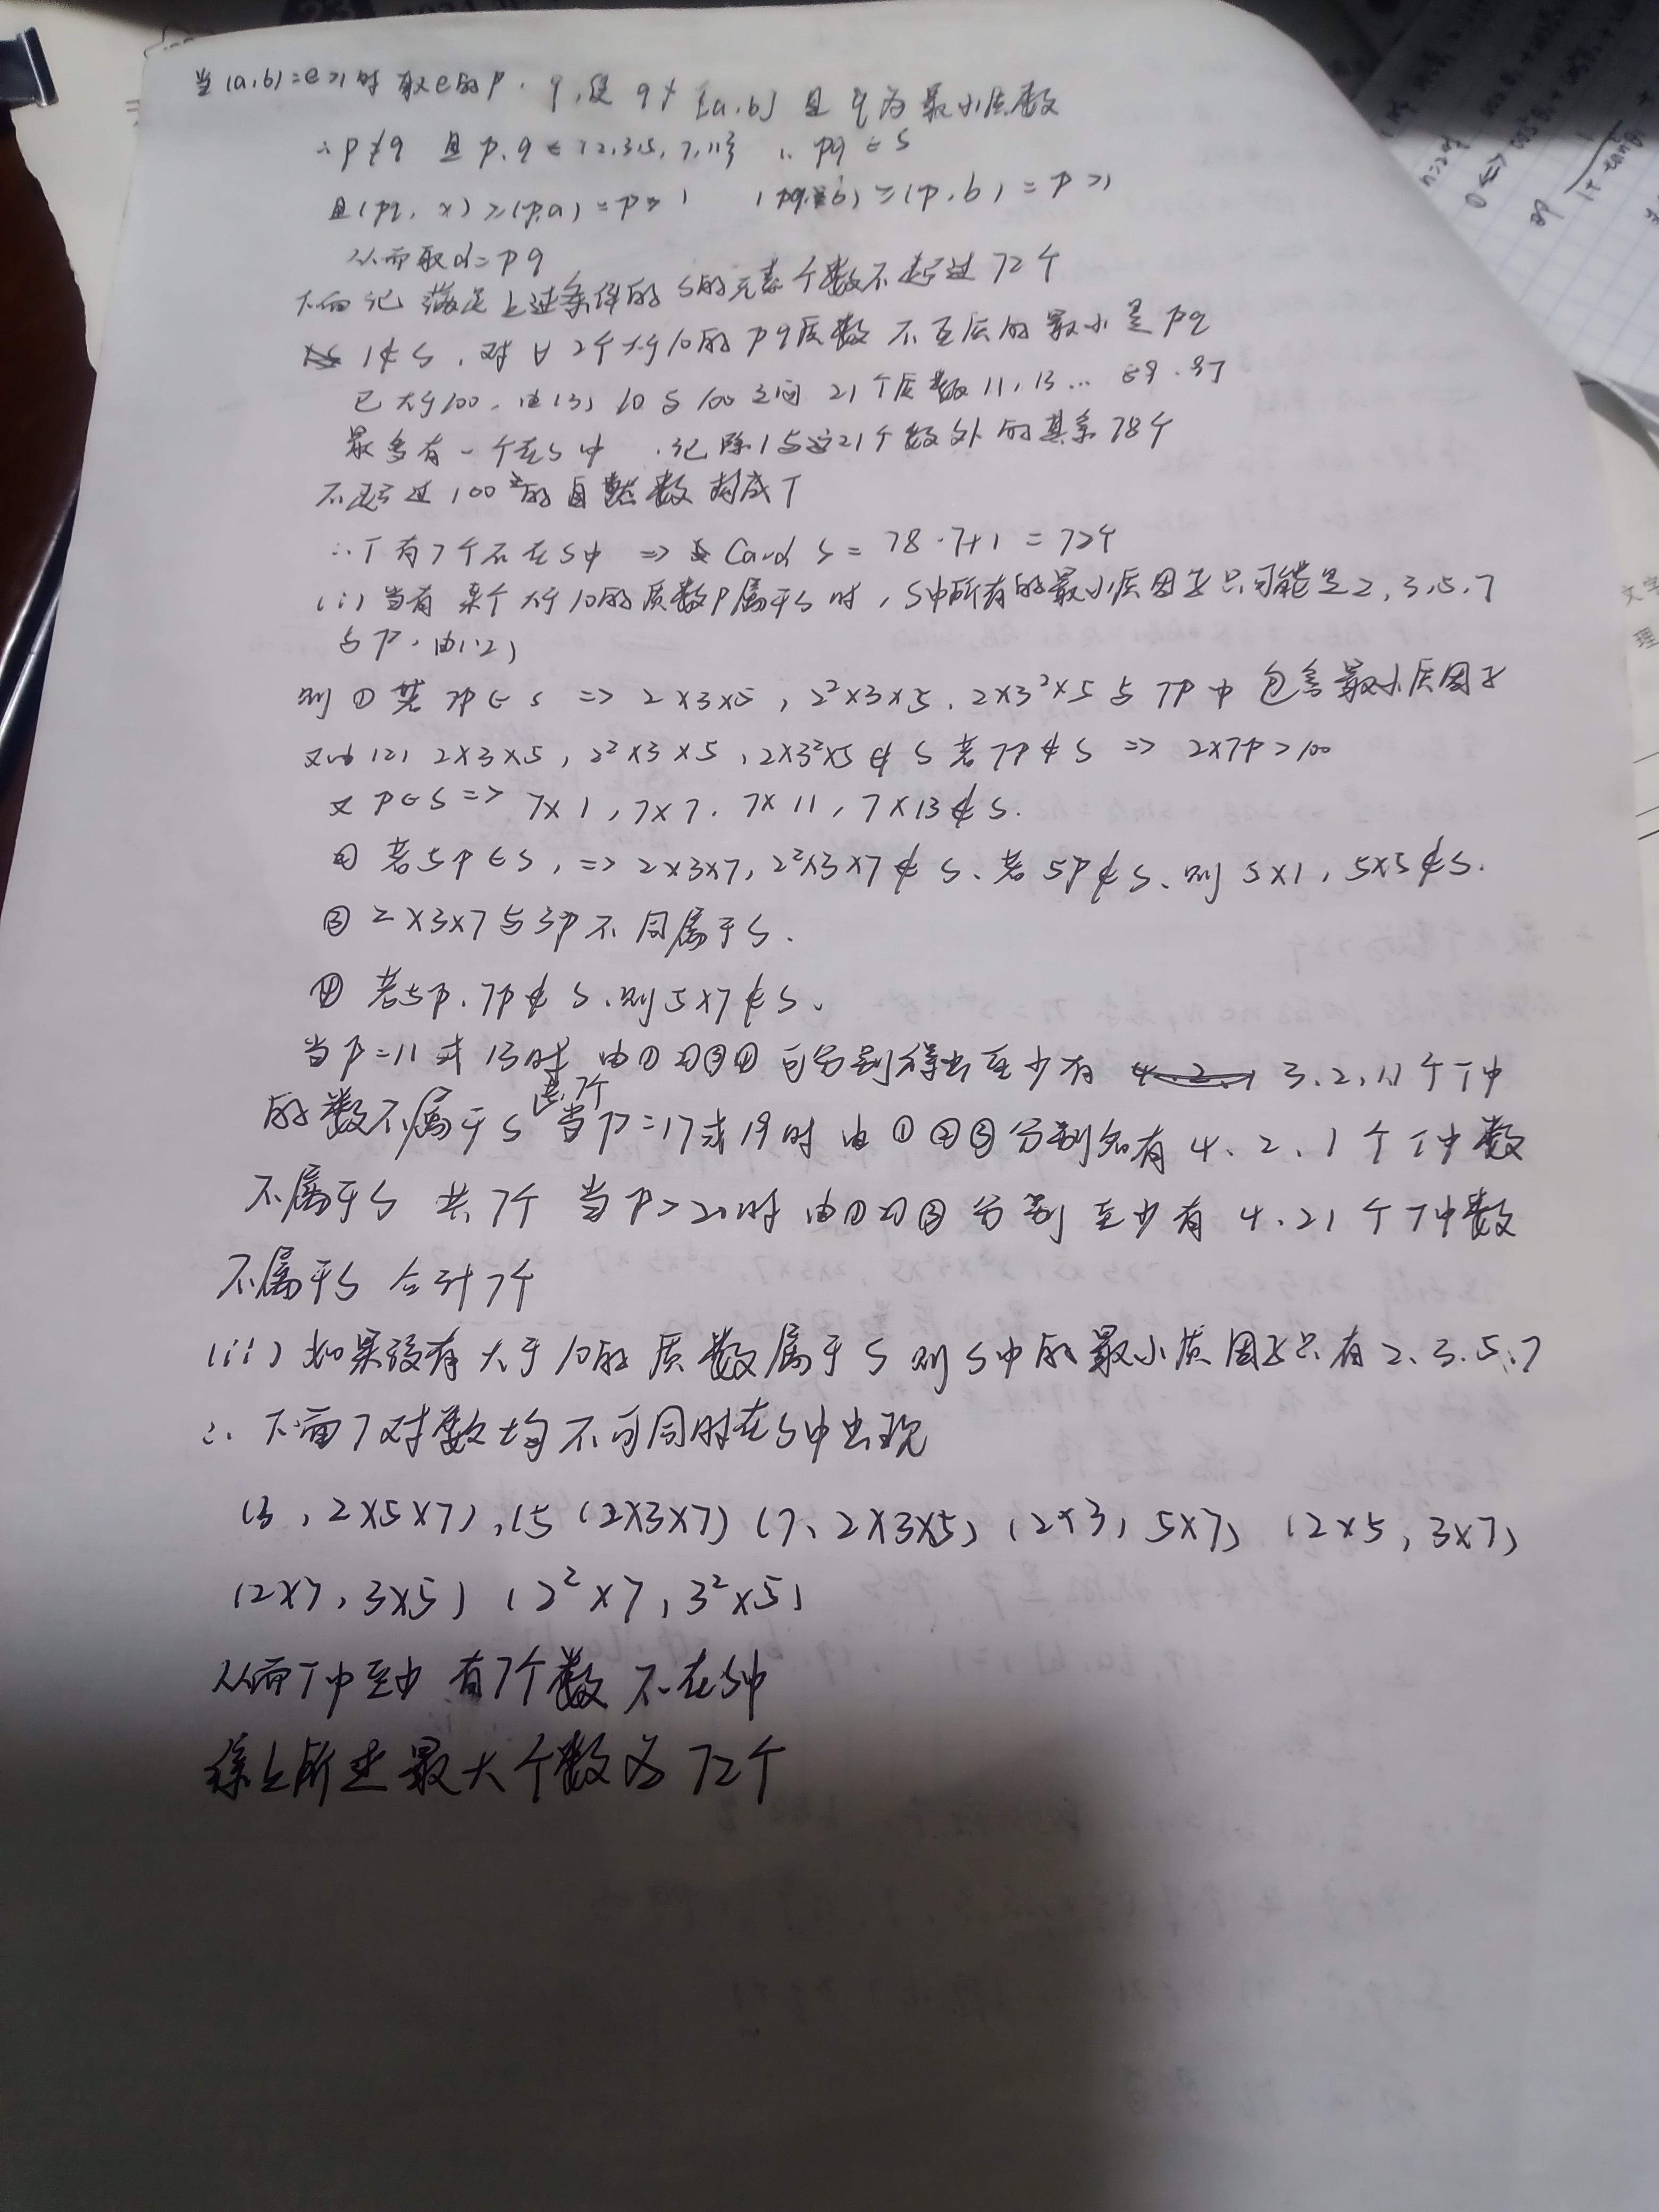 当(a,b)=e>1时 取e的p.q,使 q∤[a,b] 且 q为最小质数
∴p≠q 且 p,q∈{2,3,5,7,11} ∴pq∈S
且(pq,x)≥(p,a)=p>1 (pq,b)≥(p,b)=p>1
从而取d=pq
下面记 满足上述条件的S的元素个数不超过72个
1∉S,对∀2个大于10的pq质数 不互质的最小是pq
已大于100,由(3) 10与100之间 21个质数11,13… 89.97
最多有一个在S中 .记除1与这21个数外的其余78个
不超过100的自然数构成T
∴T有7个不在S中 => Card S = 78-7+1=72个
(ii)当有某个大于10的质数P属于S时,S中所有的最小质因子只可能是2,3,5,7
与P.由(2)
则①若7P∈S => 2×3×5,2²×3×5,2×3²×5与7P中包含最小质因子
又由(2) 2×3×5,2²×3×5,2×3²×5∉S 若7P∉S => 2×7P>100
又P∈S => 7×1,7×7,7×11,7×13∉S.
②若5P∈S,=> 2×3×7,2²×3×7∉S、若5P∉S、则5×1,5×5∉S.
③2×3×7与3P不同属于S.
④若5P、7P∉S、则5×7∉S、
当P=11或13时 由①②③④可分别得出至少有 3,2,1,1个T中
的数不属于S 共7个 当P=17或19时 由①②③分别知有4、2、1个T中数
不属于S 共7个 当P>20时 由①②③分别至少有4、2 1个T中数
不属于S 合计7个
(iii)如果没有大于10的质数属于S 则S中的最小质因子只有2、3、5、7
∴下面7对数均不可同时在S中出现
(3,2×5×7),(5(2×3×7)(7、2×3×5)(2×3,5×7)(2×5,3×7)
(2×7,3×5)(2²×7,3²×5)
从而T中至少有7个数不在S中
综上所述最大个数为72个